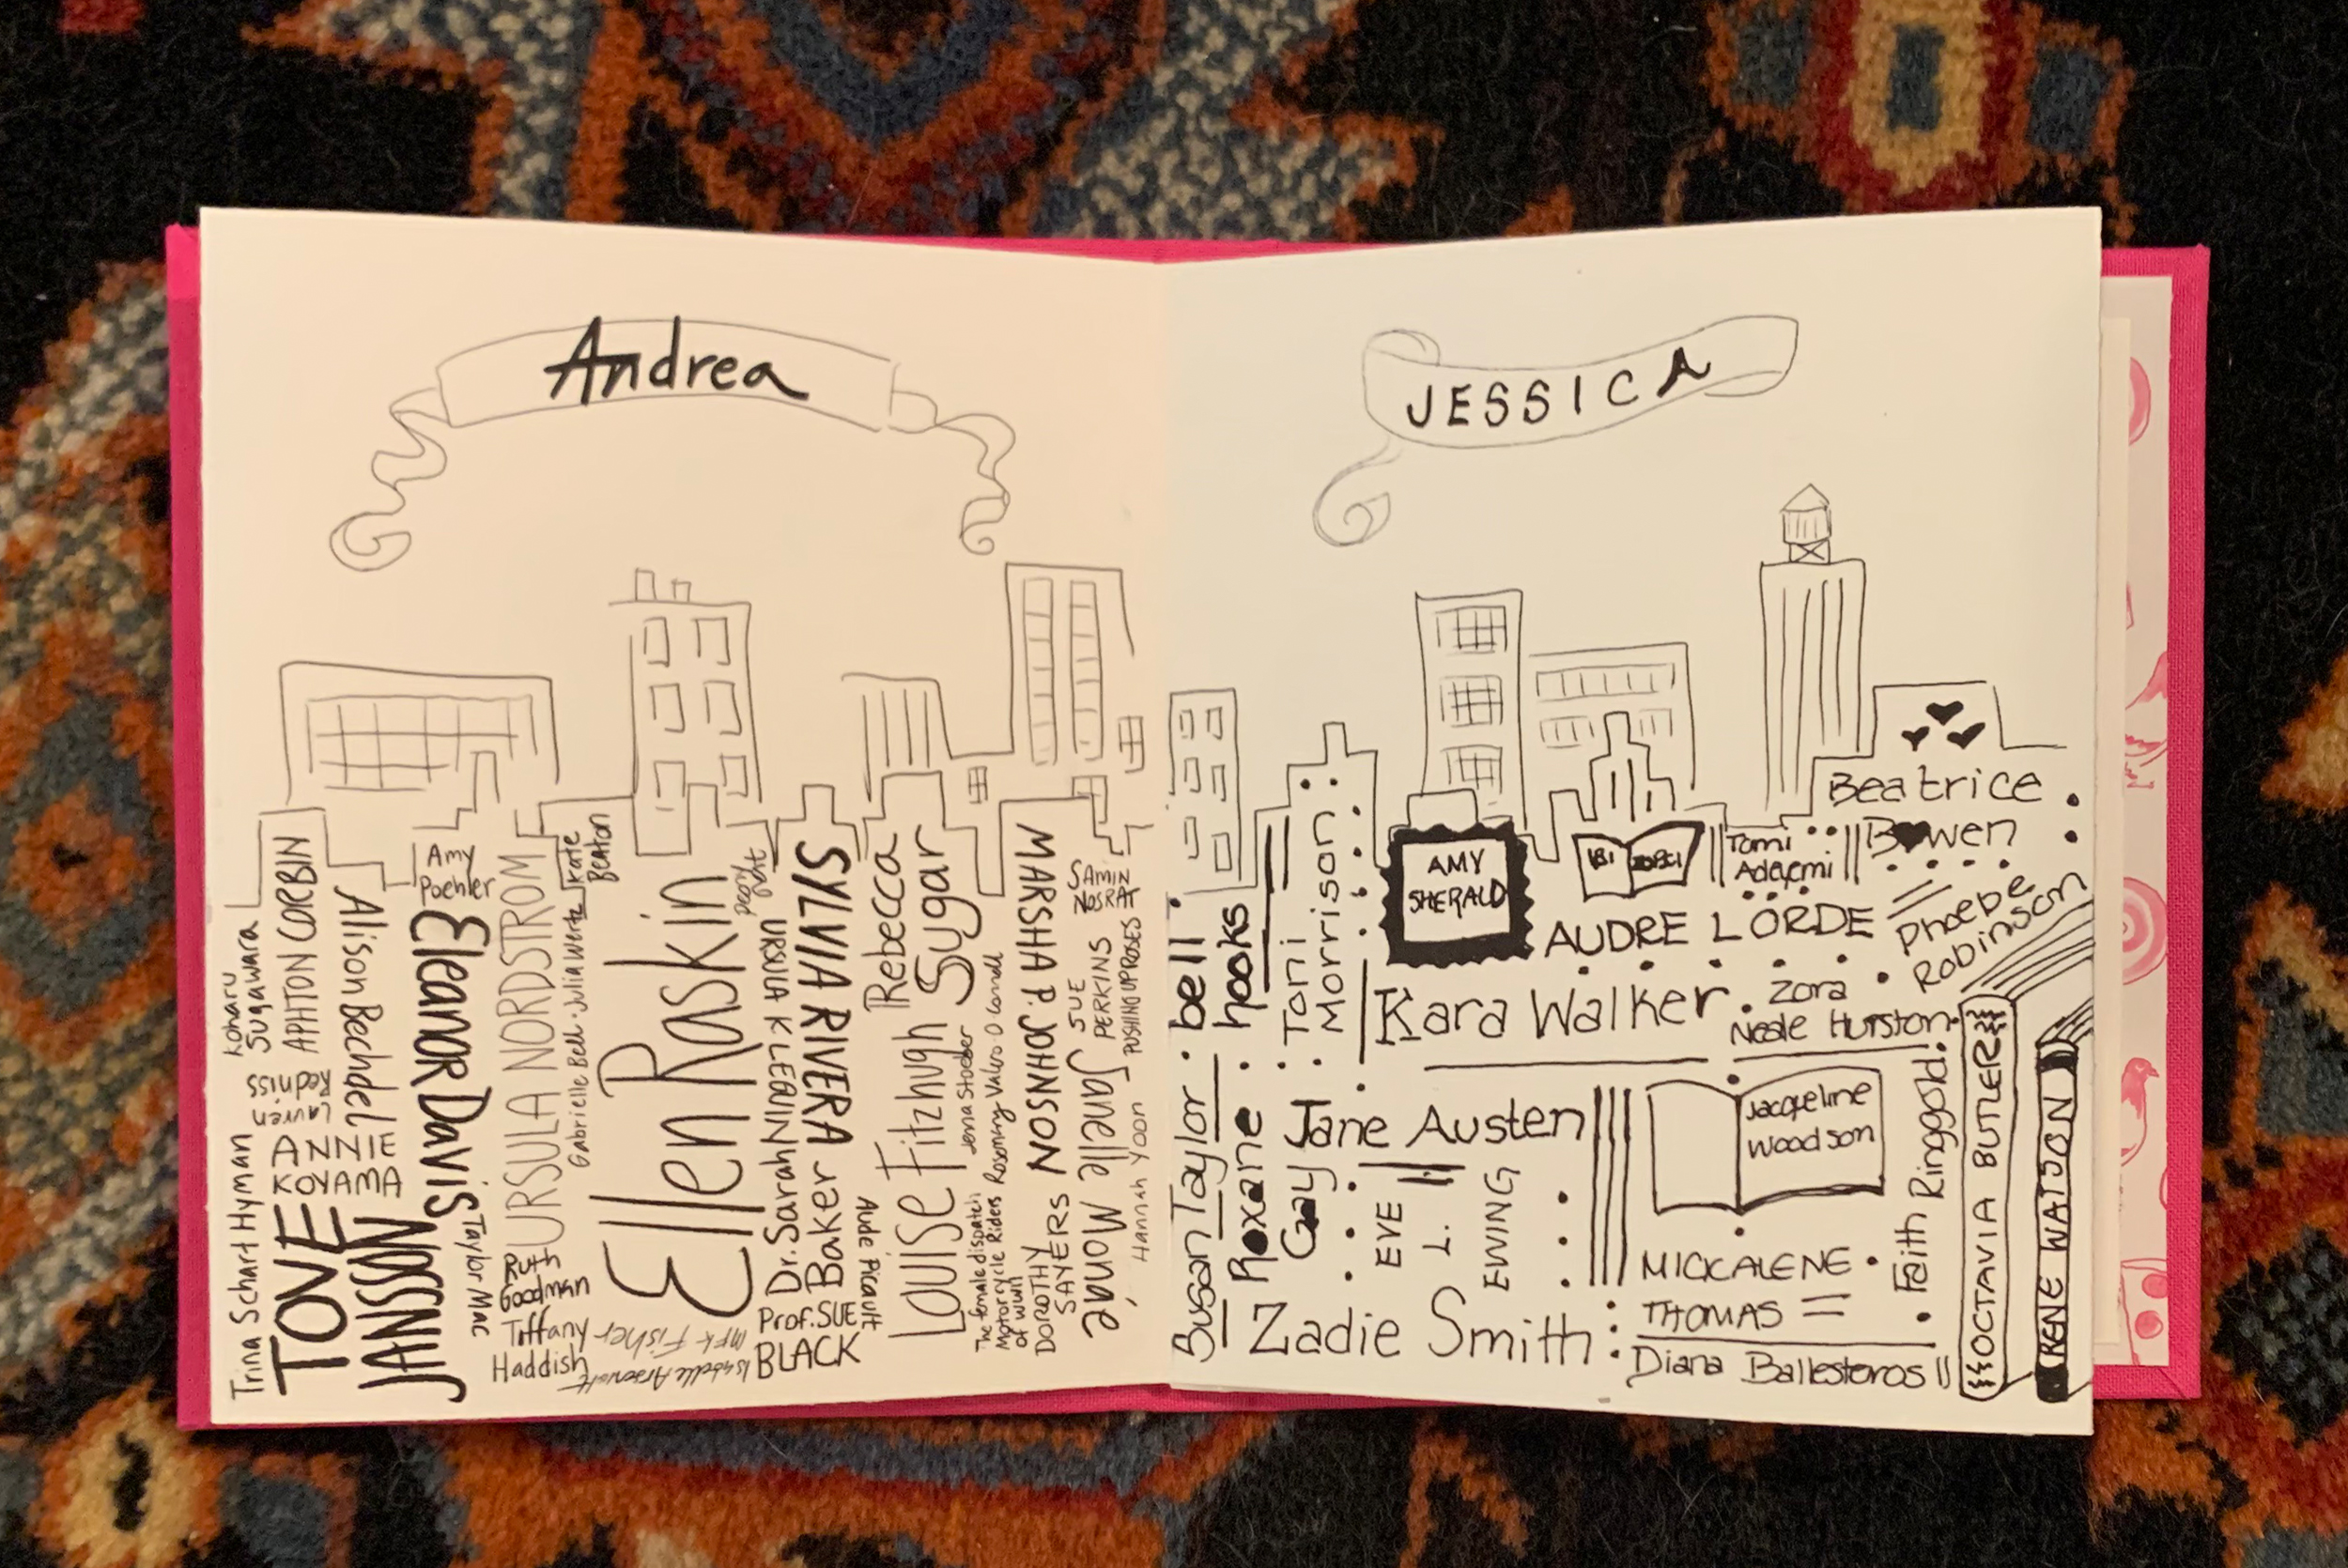 Andrea
Koharu
Sugawara
APHTON CORBIN
Alison Bechdel
Amy
Poehler
Eleanor Davis
URSULA NORDSTROM
Kate
Beaton
Gabrielle Bell · Julia Wertz
Lauren
Redniss
ANNIE
KOYAMA
Trina Schart Hyman
TOVE
JANSSON
Taylor Mac
Ruth
Goodman
Tiffany
Haddish
MFK Fisher
Isabelle Arsenault
Ellen Raskin
URSULA K LEGUIN
SYLVIA RIVERA
Dr. Sarah
Baker
Prof. SUE
BLACK
Aude Picault
Rebecca
Sugar
Louise Fitzhugh
Jenna Stoeber
Rosemary Valero-O'Connell
The female dispatch
Motorcycle Riders
of WWII
MARSHA P. JOHNSON
DOROTHY
SAYERS
SAMIN
NOSRAT
SUE
PERKINS
PUSHINGUPROSES
Janelle Monáe
Hannah Yoon
JESSICA
bell
hooks
Toni
Morrison
AMY
SHERALD
IBI
ZOBOI
Tomi
Adeyemi
Beatrice
Bowen
AUDRE LORDE
Phoebe
Robinson
Kara Walker
Zora
Neale Hurston
Susan Taylor
Roxane
Gay
Jane Austen
EVE
L.
EWING
Jacqueline
Woodson
Faith Ringgold
OCTAVIA BUTLER
RENE WATSON
MICKALENE
THOMAS
Zadie Smith
Diana Ballesteros